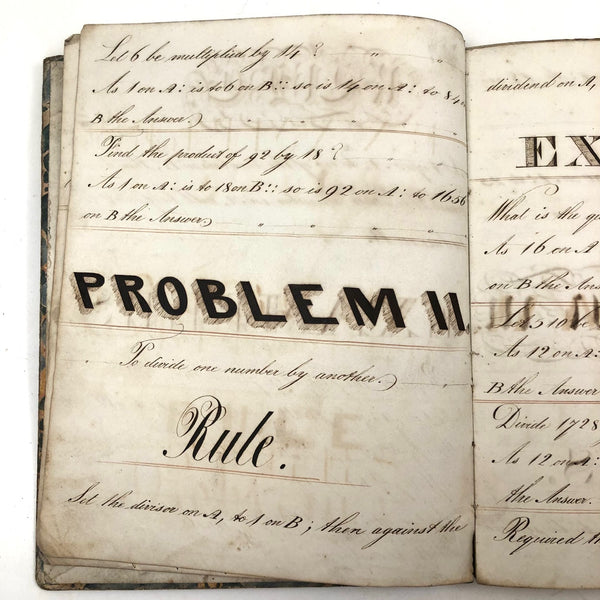 Let 6 be multiplied by 14?
As 1 on A: is to 6 on B:: so is 14 on A: to 84 on
B the Answer.
Find the product of 92 by 18?
As 1 on A: is to 18 on B:: so is 92 on A: to 1656
on B the Answer.
PROBLEM II.
To divide one number by another.
Rule.
Set the divisor on A, to 1 on B; then against the
dividend on A,
EX
What is the qu
As 16 on A
on B the Ans
Let 510 be
As 12 on A:
B the Answer
Divide 1728
As 12 on A:
the Answer.
Required th